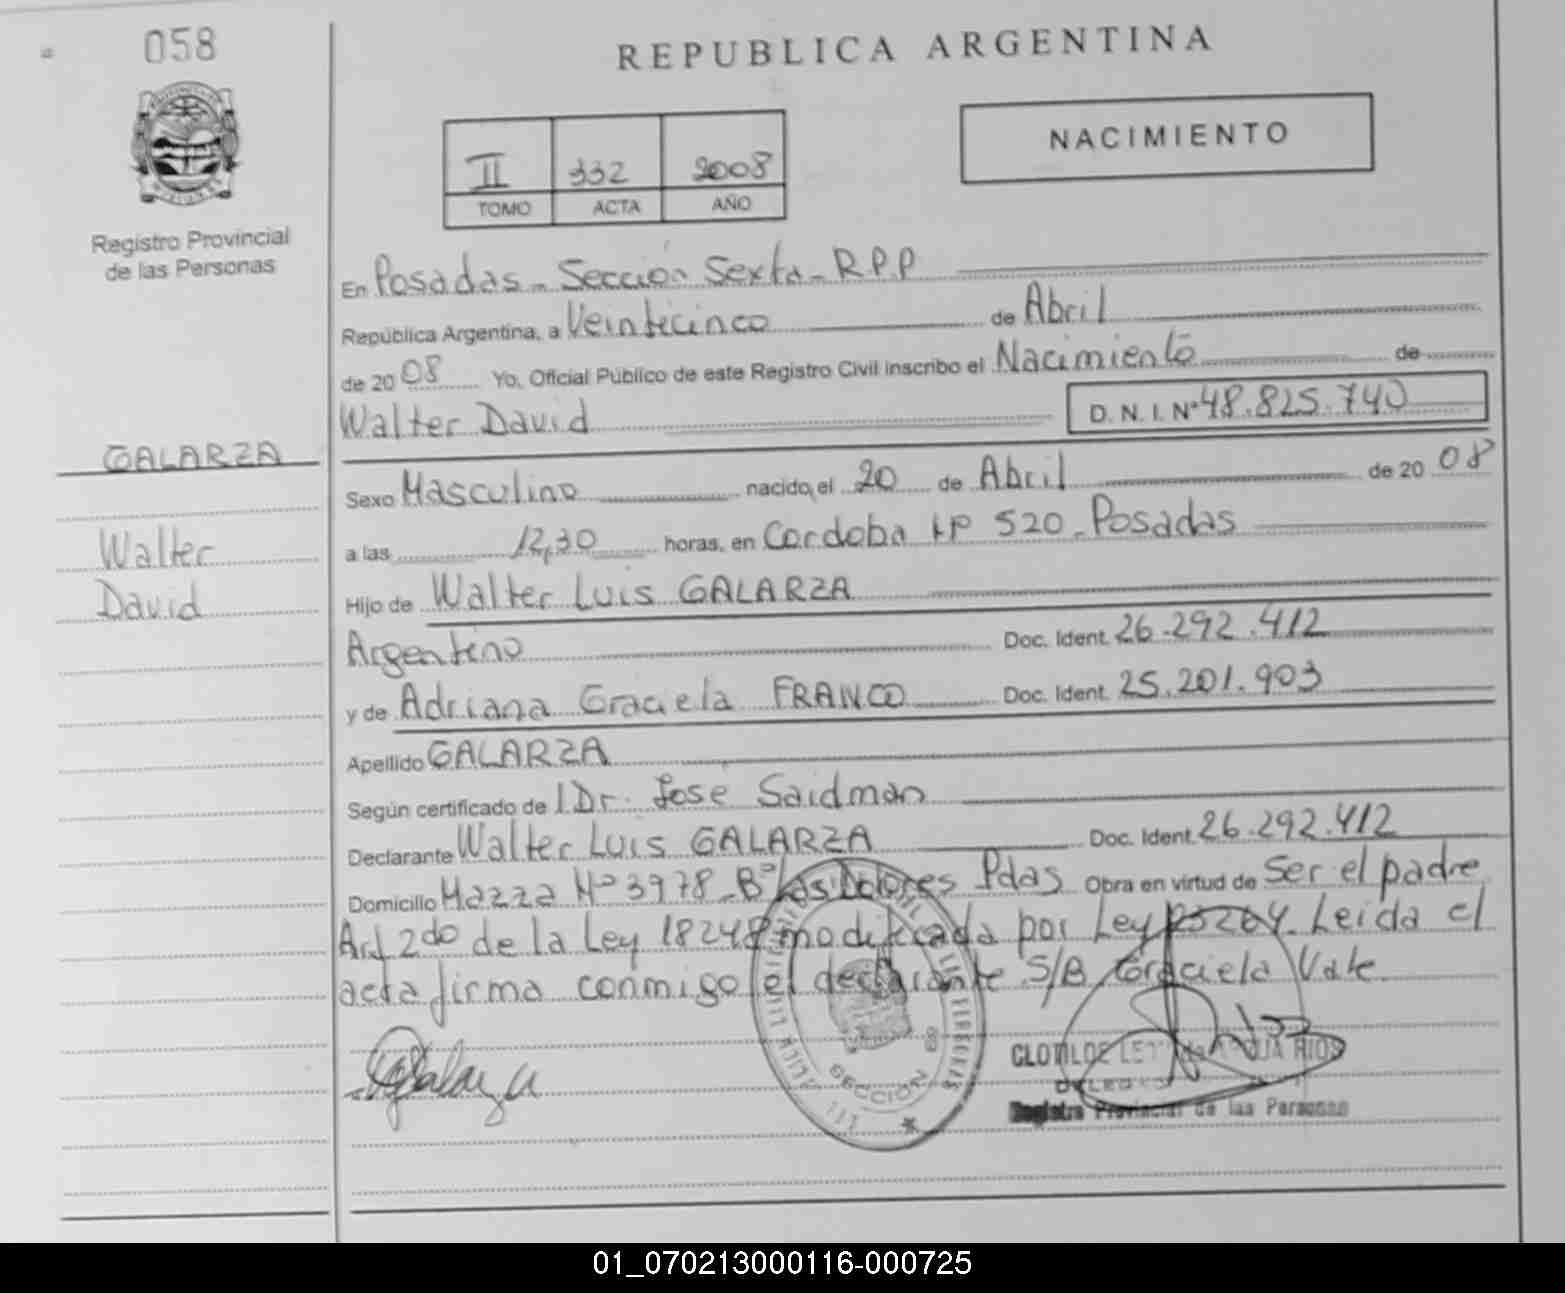 058
REPUBLICA ARGENTINA
NACIMIENTO
II 332 2008
TOMO ACTA AÑO
Registro Provincial
de las Personas
En Posadas - Sección Sexta - R.P.P
República Argentina, a Veinticinco de Abril
de 2008 Yo, Oficial Público de este Registro Civil inscribo el Nacimiento de
Walter David D. N. I. Nº 48.825.740
GALARZA
Sexo Masculino nacido el 20 de Abril de 2008
Walter
a las 12,30 horas, en Cordoba Nº 520 - Posadas
David
Hijo de Walter Luis GALARZA
Argentino Doc. Ident. 26.292.412
y de Adriana Graciela FRANCO Doc. Ident. 25.201.903
Apellido GALARZA
Según certificado de l Dr. Jose Saidman
Declarante Walter Luis GALARZA Doc. Ident. 26.292.412
Domicilio Mazza Nº 3978 - Bº Los Dolores Pdas Obra en virtud de Ser el padre
Art 2do de la Ley 18248 modificada por Ley 23264. Leida el
acta firma conmigo el declarante S/B Graciela Vale.
Galarza
SECCION
CLOTILDE RIOS
Registro Provincial de las Personas
01_070213000116-000725